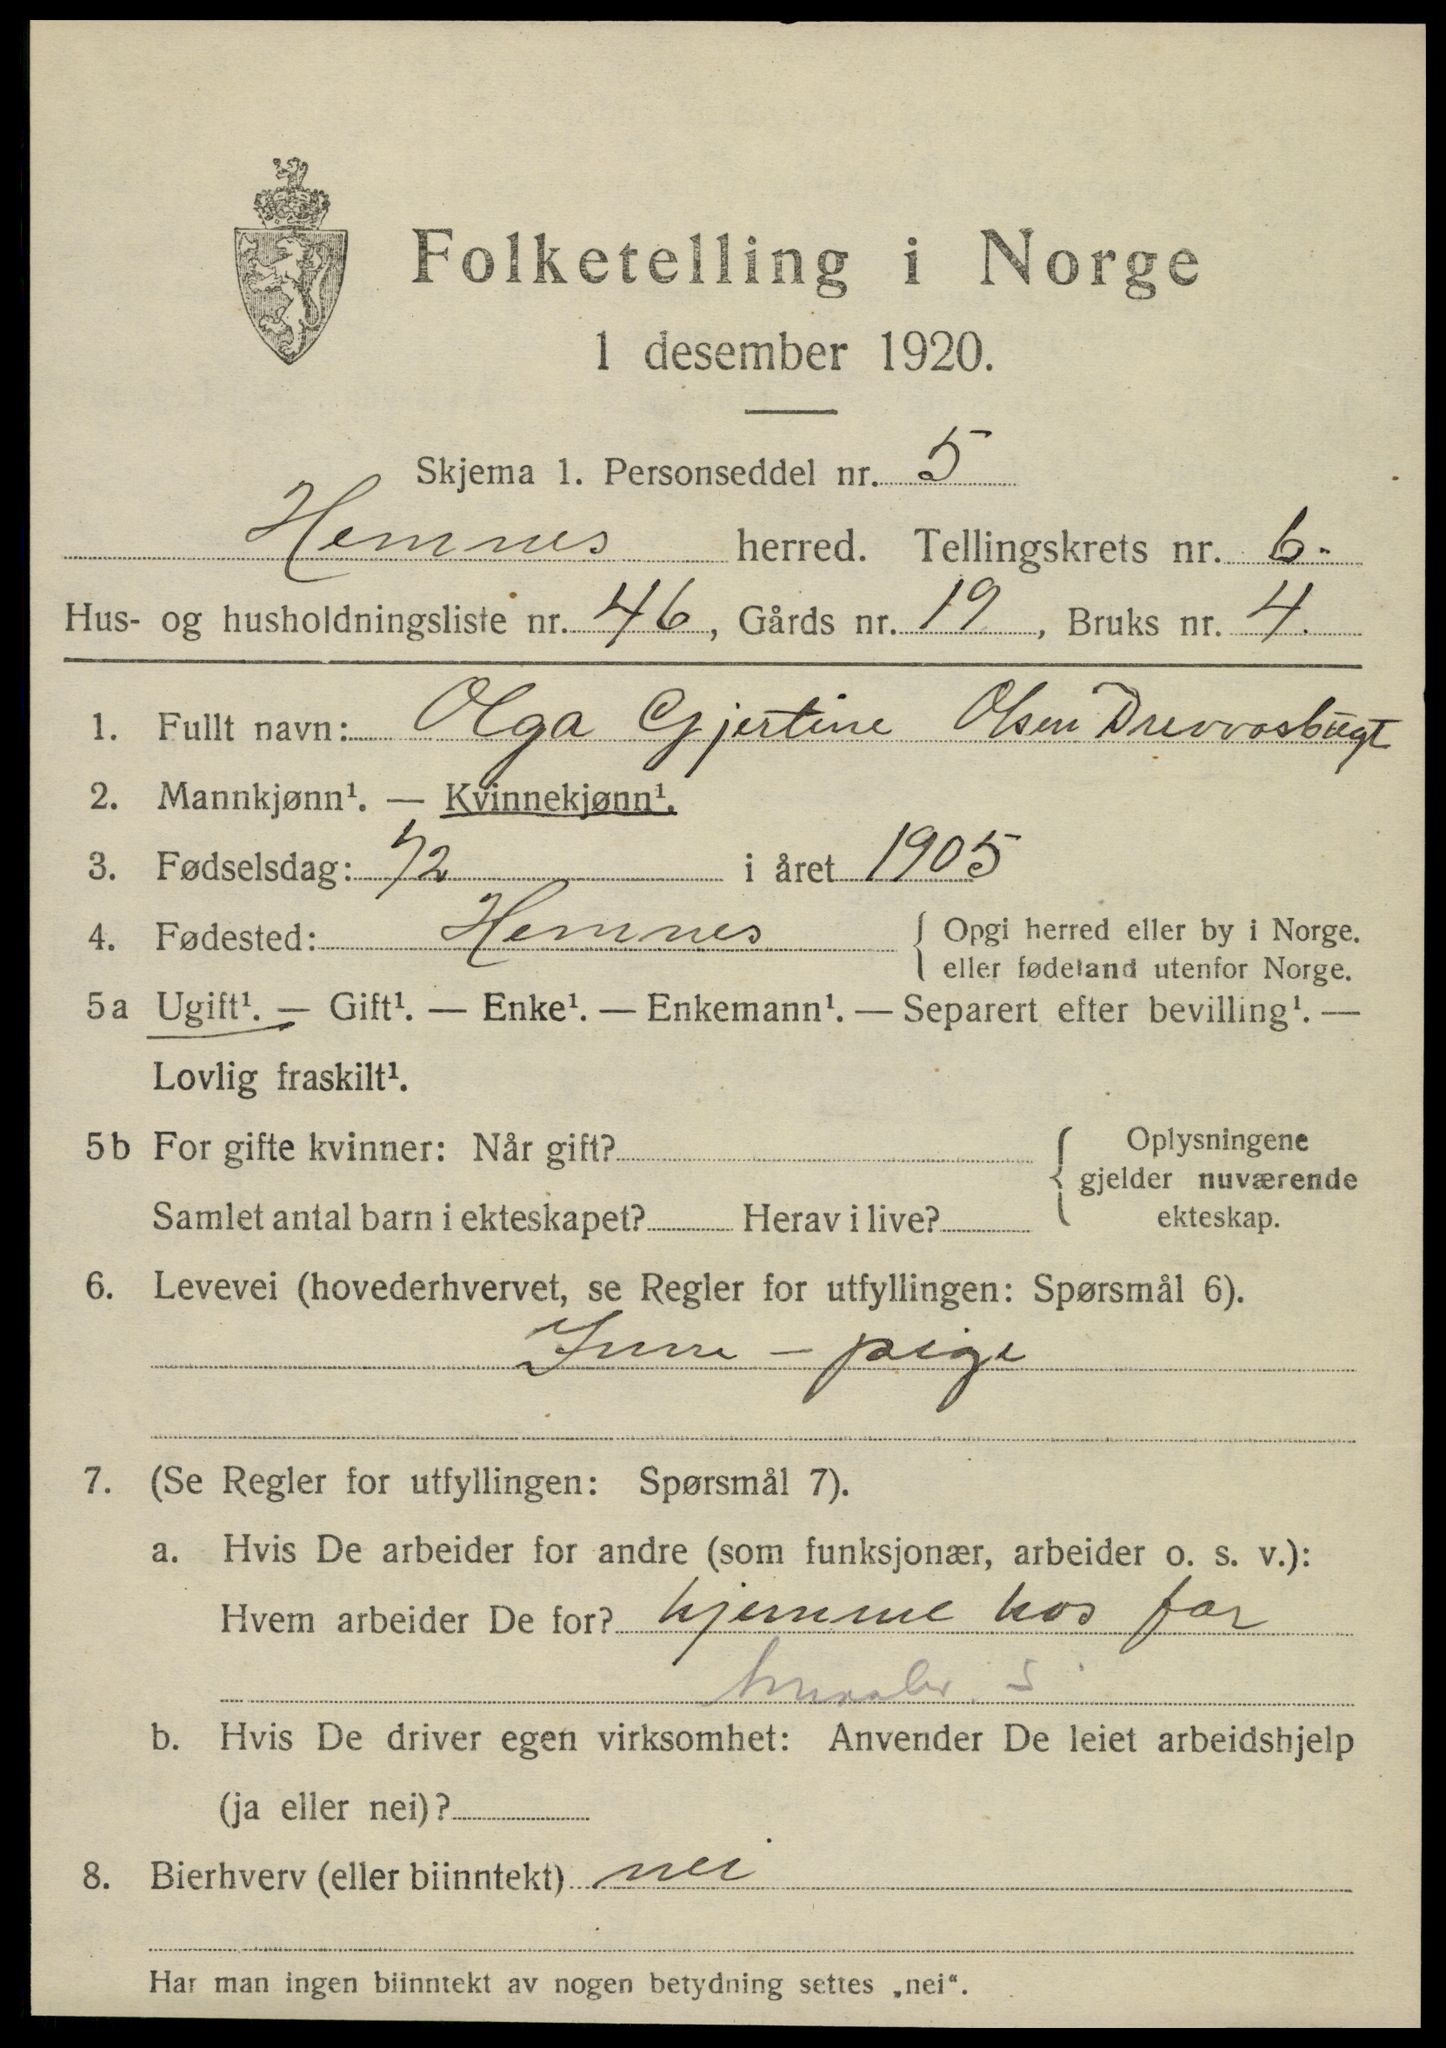 Folketelling i Norge
1 desember 1920.
Skjema 1. Personseddel nr. 5
Hemnes herred. Tellingskrets nr. 6.
Hus- og husholdningsliste nr. 46, Gårds nr. 19, Bruks nr. 4.
1. Fullt navn: Olga Gjertine Olsen Drevvasbugt
2. Mannkjønn¹. — Kvinnekjønn¹.
3. Fødselsdag: 5/2 i året 1905
4. Fødested: Hemnes { Opgi herred eller by i Norge.
eller fødeland utenfor Norge.
5a Ugift¹. — Gift¹. — Enke¹. — Enkemann¹. — Separert efter bevilling¹. —
Lovlig fraskilt¹.
5b For gifte kvinner: Når gift?
Samlet antal barn i ekteskapet? Herav i live?
{ Oplysningene
gjelder nuværende
ekteskap.
6. Levevei (hovederhvervet, se Regler for utfyllingen: Spørsmål 6).
Inne - pige
7. (Se Regler for utfyllingen: Spørsmål 7).
a. Hvis De arbeider for andre (som funksjonær, arbeider o. s. v.):
Hvem arbeider De for? hjemme hos far
b. Hvis De driver egen virksomhet: Anvender De leiet arbeidshjelp
(ja eller nei)?
8. Bierhverv (eller biinntekt) nei
Har man ingen biinntekt av nogen betydning settes „nei“.